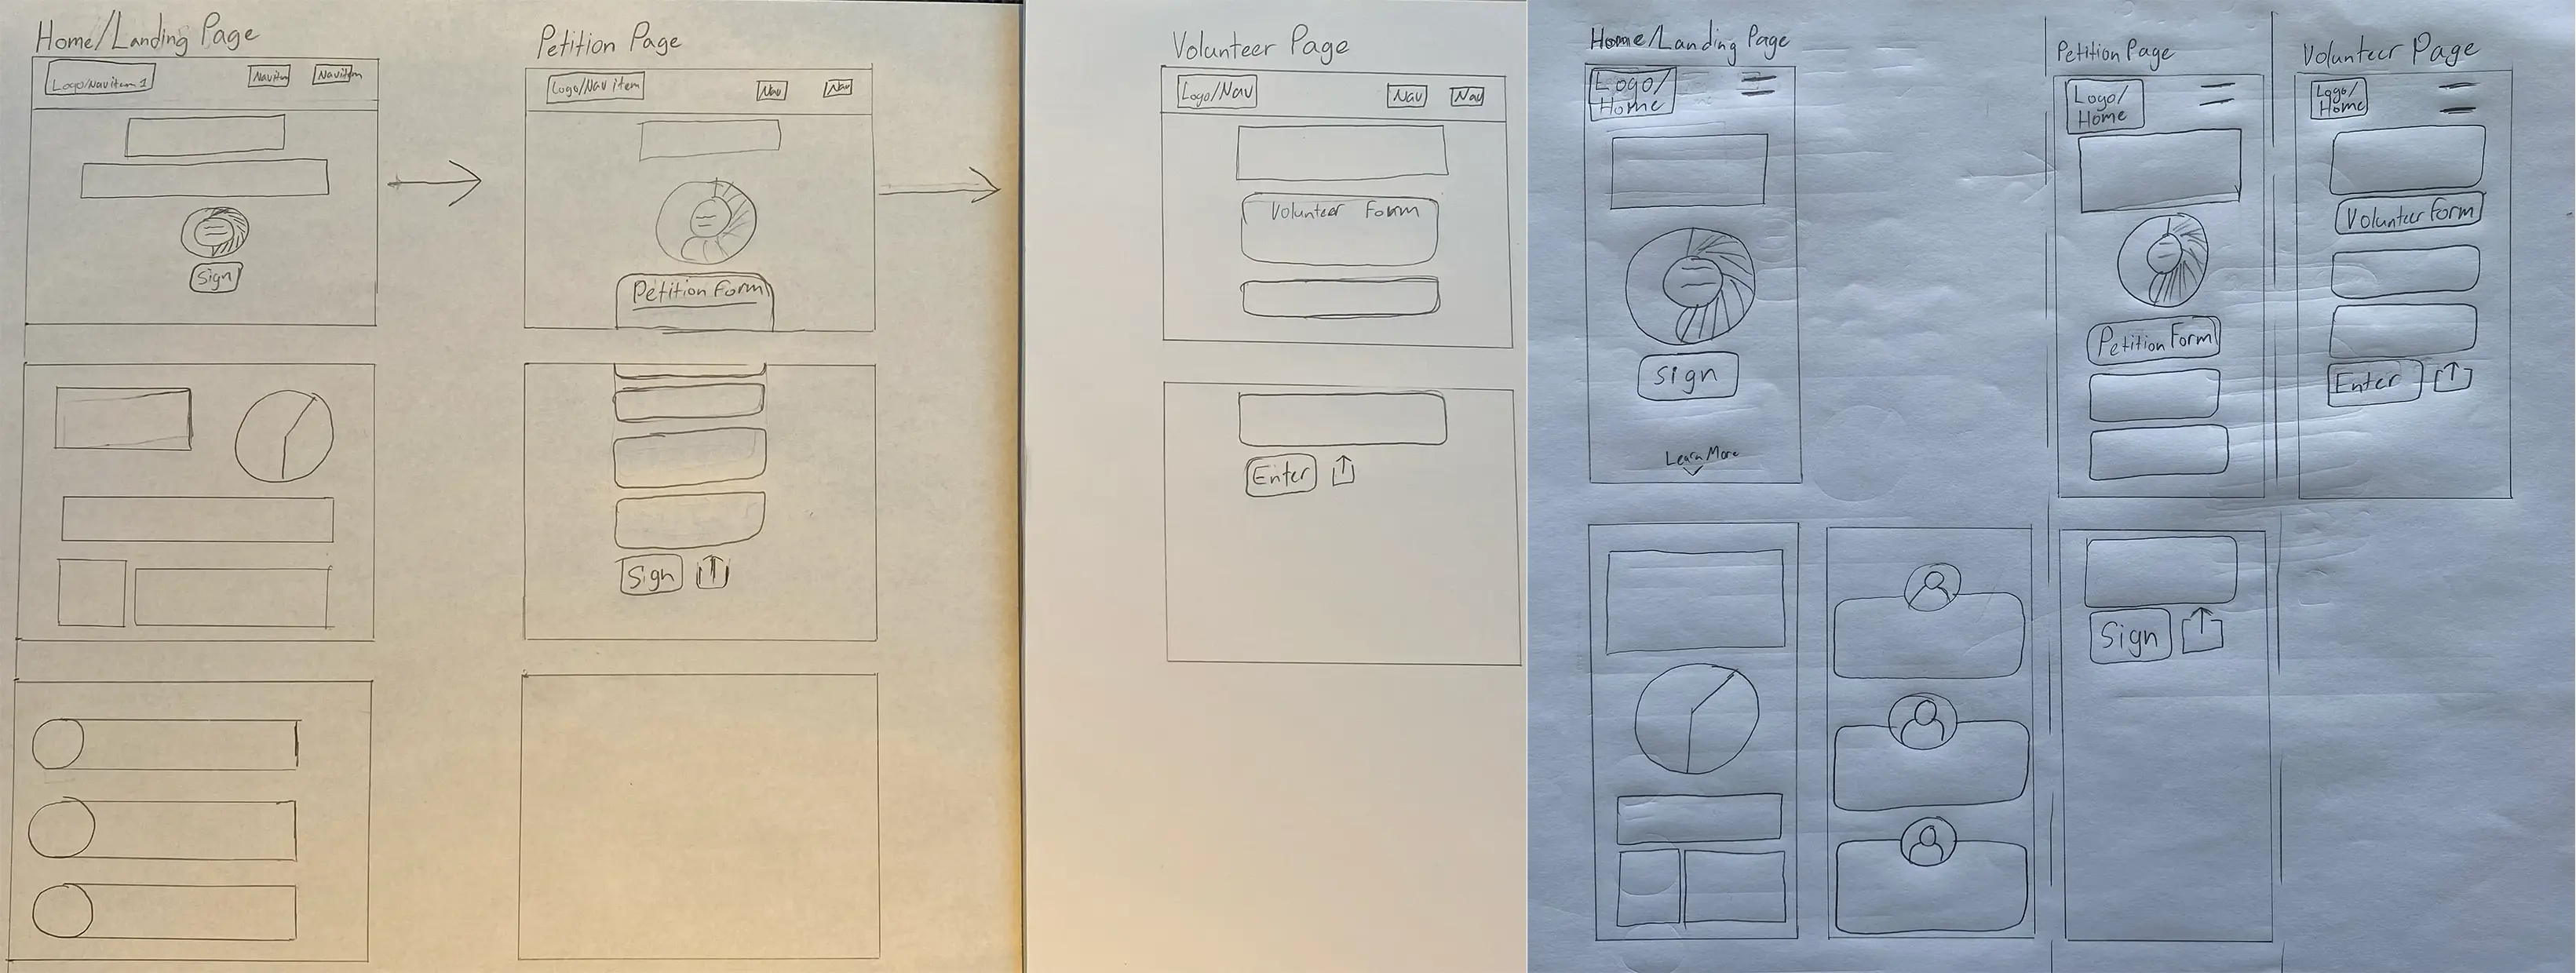 Home/Landing Page
Logo/Nav Item 1
Nav Item
Nav Item
Sign
Petition Page
Logo/Nav item
Nav
Nav
Petition Form
Sign
Volunteer Page
Logo/Nav
Nav
Nav
Volunteer Form
Enter
Home/Landing Page
Logo/
Home
Sign
Learn More
Petition Page
Logo/
Home
Petition Form
Sign
Volunteer Page
Logo/
Home
Volunteer Form
Enter